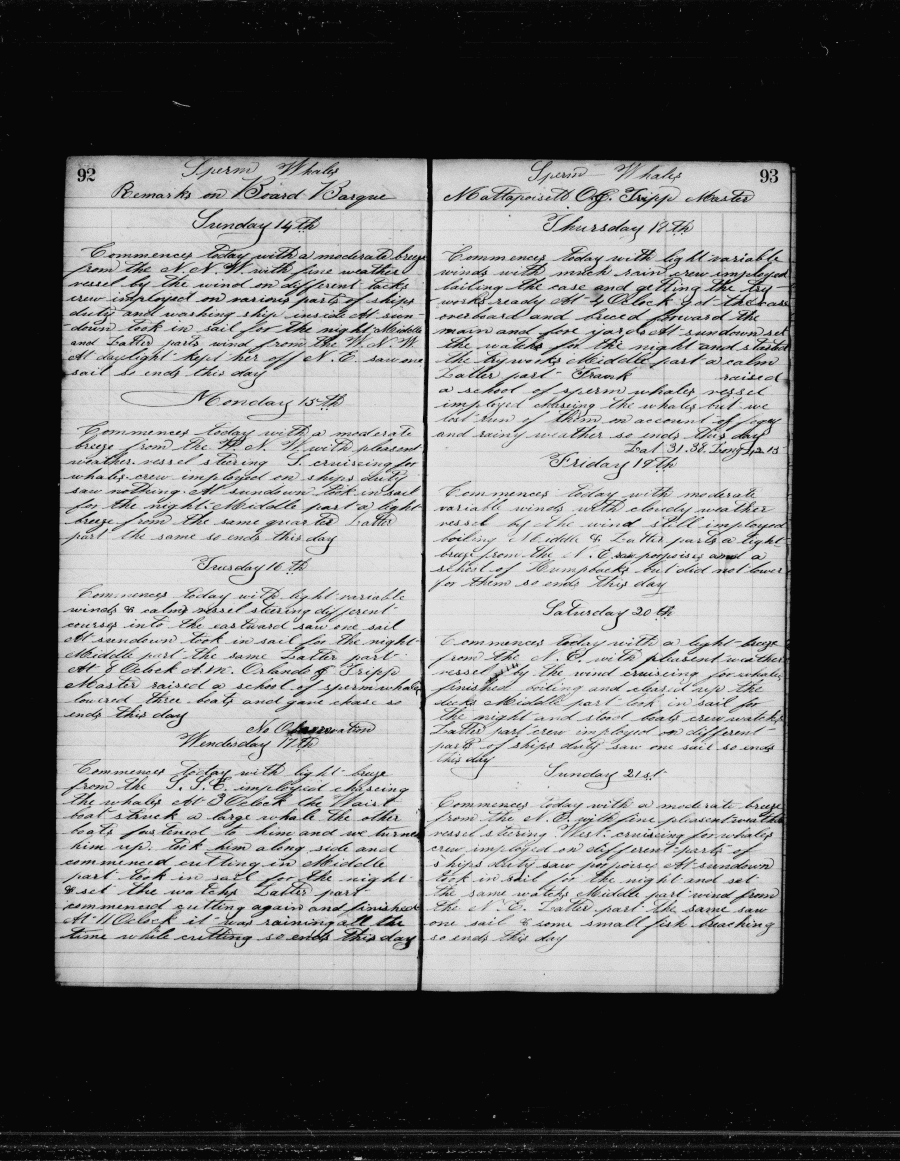 92
Sperm Whales
Remarks on Board Barque
Sunday 14th
Commences today with a moderate breeze
from the N. N. W. with fine weather
vessel by the wind on different tacks
crew imployed on various parts of ships
duty and washing ship inside At sun
down took in sail for the night Middle
and Latter parts wind from the W. N. W.
At daylight kept her off N. E. saw one
sail so ends this day
Monday 15th
Commences today with a moderate
breeze from the N. W. with pleasent
weather vessel stering S. cruiscing for
whales crew imployed on ships duty
saw nothing At sundown took in sail
for the night Middle part a light
breeze from the same quarter Latter
part the same so ends this day
Tuesday 16th
Commences today with light variable
winds & calms vessel steering different
courses into the eastward saw one sail
At sundown took in sail for the night
Middle part the same Latter part
At 8 Oclock A.M. Orlando G Tripp
Master raised a school of sperm whales
lowered three boats and gave chase so
ends this day
No Observation
Wendesday 17th
Commences today with light breeze
from the S. S. E. imployed chaseing
the whales At 3 Oclock the Waist
boat struck a large whale the other
boats fastened to him and we turned
him up. took him along side and
commenced cutting in Middle
part took in sail for the night
& set the watches Latter part
commenced cutting again and finished
At 11 Oclock it was raining all the
time while cutting so ends this day
93
Sperm Whales
Mattapoisett O. G. Tripp Master
Thursday 18th
Commences today with light variable
winds with much rain crew imployed
bailing the case and getting the try
works ready At 4 Oclock got the case
overboard and breced forward the
main and fore yards At sundown set
the watches for the night and started
the tryworks Middle part a calm
Latter part Frank raised
a school of sperm whales vessel
imployed chaseing the whales but we
lost run of them on account of foggy
and rainy weather so ends this day
Lat 31.38 Long
Friday 19th
Commences today with moderate
variable winds with cloudy weather
vessel by the wind still imployed
boiling Middle & Latter parts a light
breeze from the N. E. saw porpoises and a
school of Humpbacks but did not lower
for them so ends this day
Saturday 20th
Commences today with a light breeze
from the N. E. with pleasent weather
vessel by the wind cruiscing for whales
finished boiling and cleared up the
decks Middle part took in sail for
the night and stood boats crew watches
Latter part crew imployed on different
parts of ships duty saw one sail so ends
this day
Sunday 21st
Commences today with a moderate breeze
from the N. E. with fine pleasent weather
vessel stering West. cruiscing for whales
crew imployed on different parts of
ships duty saw porpoises At sundown
took in sail for the night and set
the same watches Middle part wind from
the N. E. Latter part the same saw
one sail & some small fish breaching
so ends this day